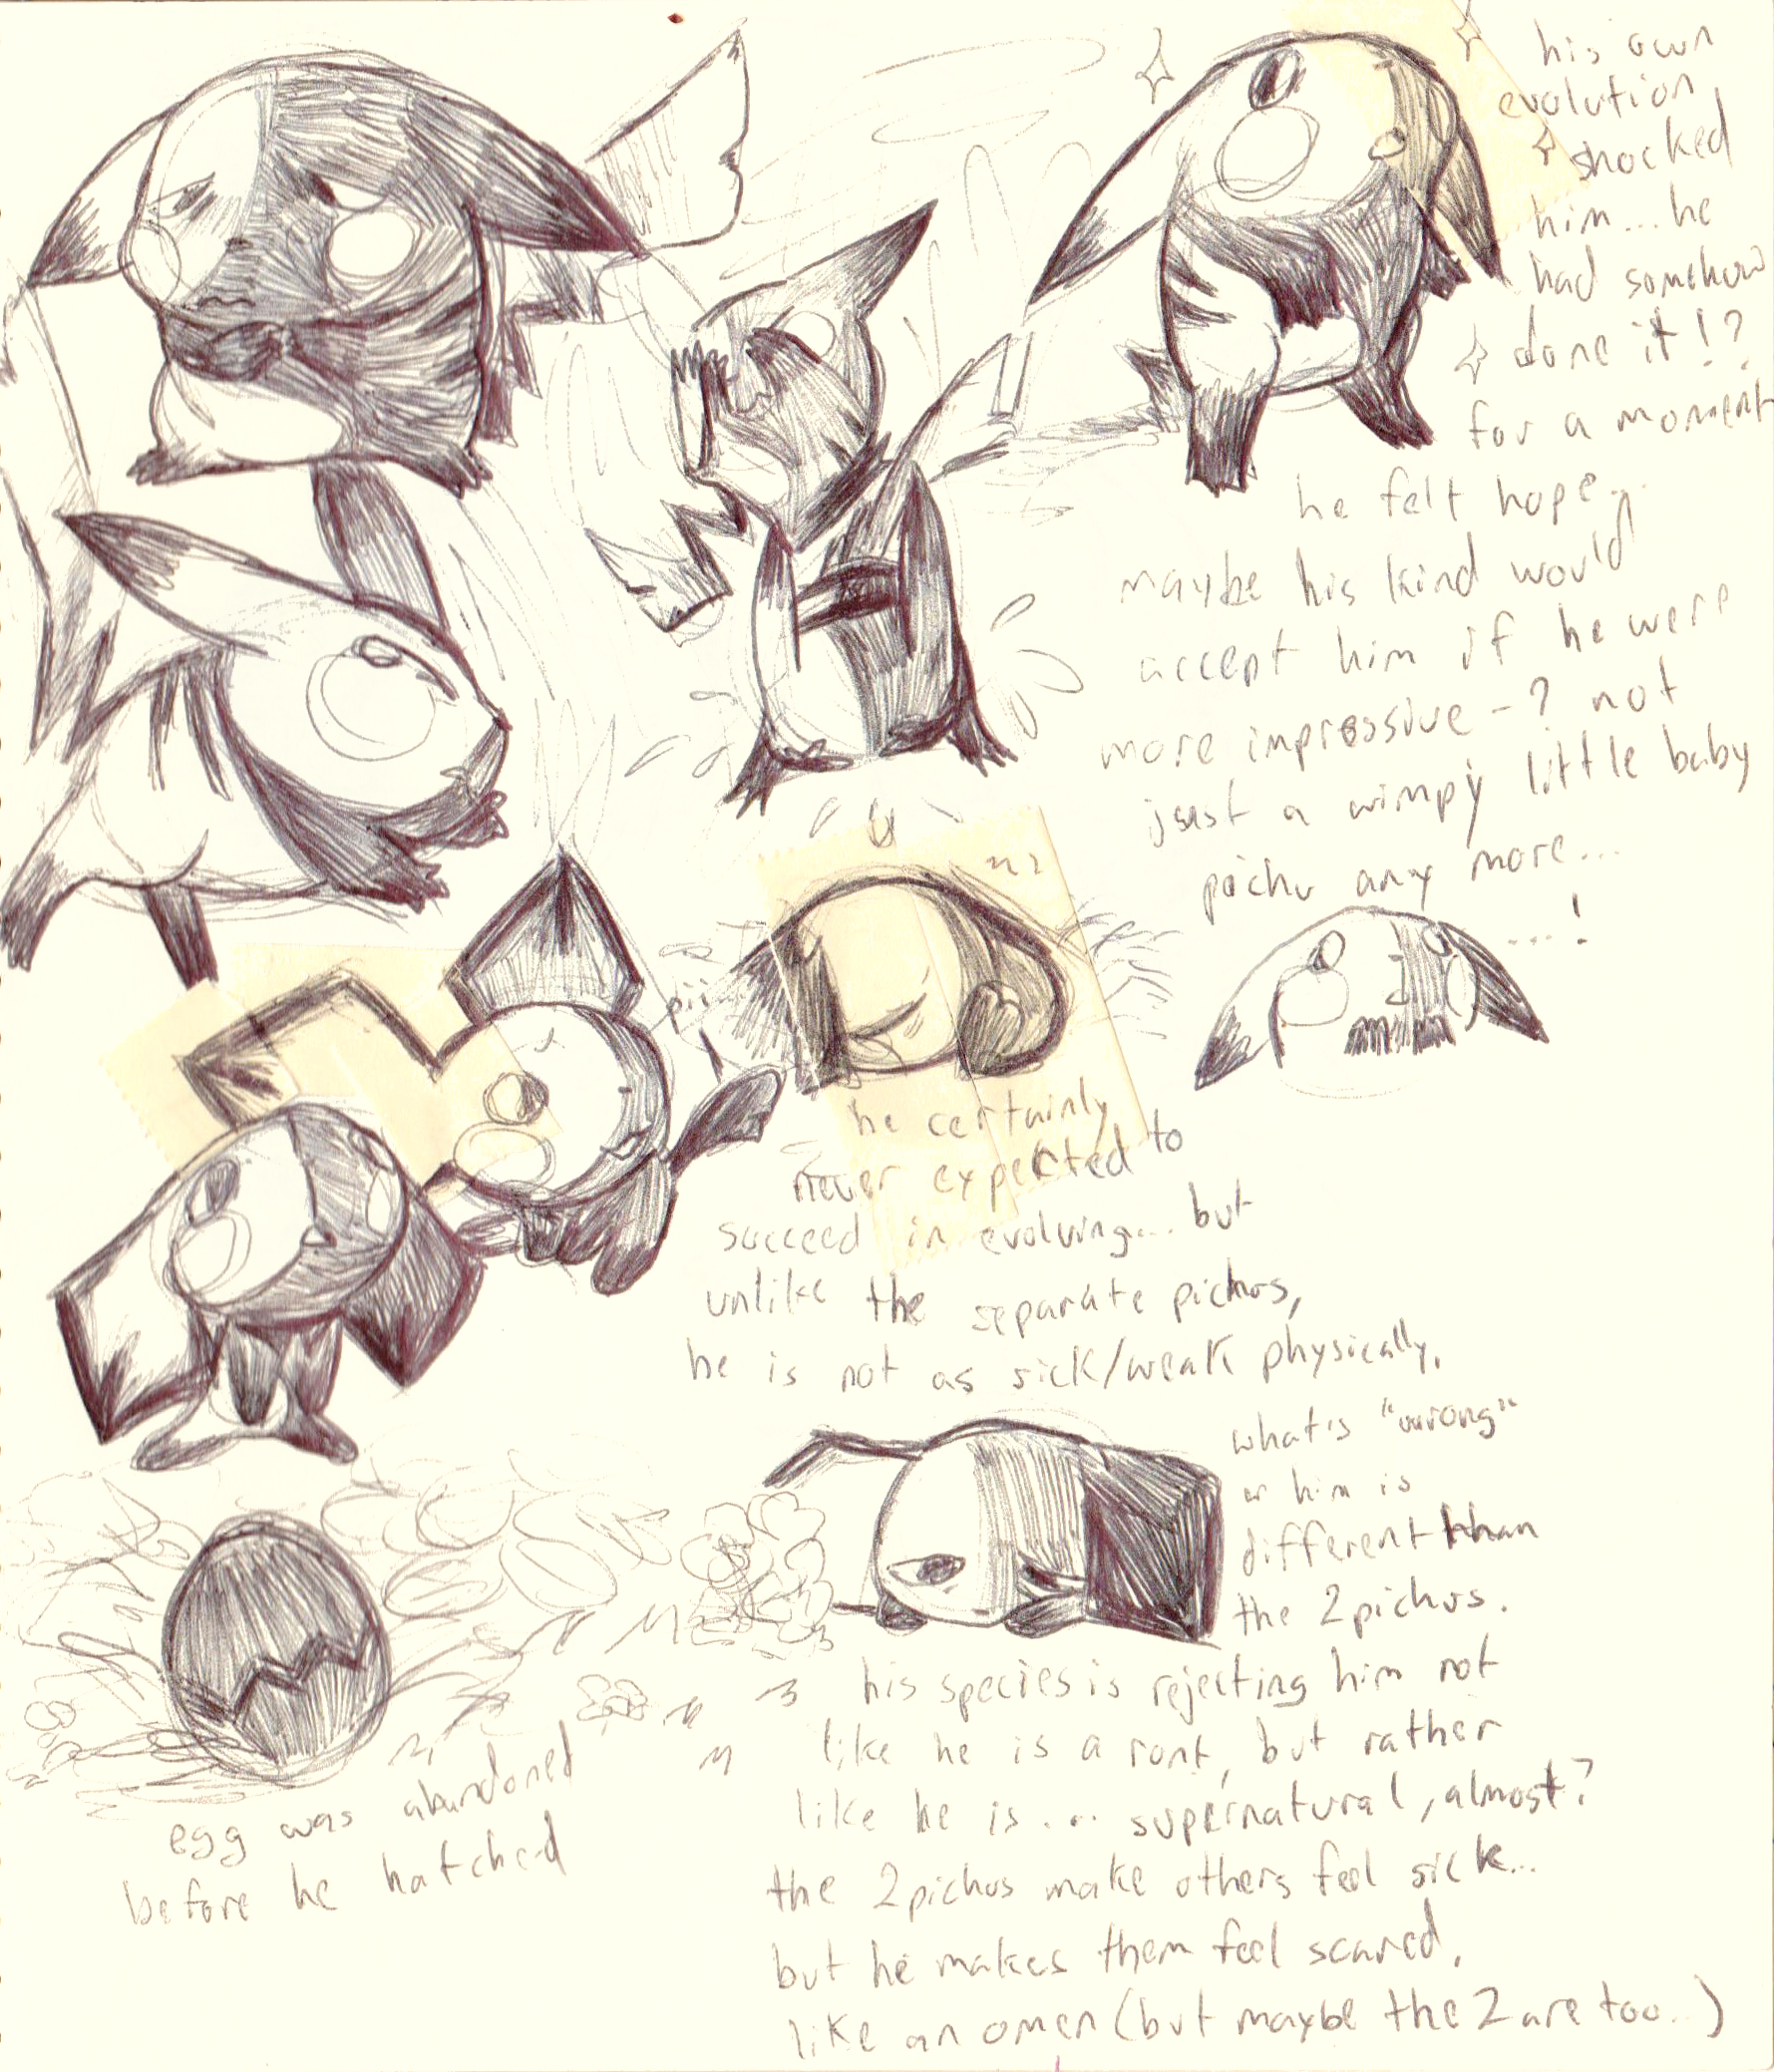 his own
evolution
shocked
him... he
had somehow
done it!?
for a moment
he felt hope...
maybe his kind would
accept him if he were
more impressive-? not
just a wimpy little baby
pichu any more...
...!
pii...
he certainly
never expected to
succeed in evolving... but
unlike the separate pichus,
he is not as sick/weak physically.
what is "wrong"
w him is
different than
the 2 pichus.
his species is rejecting him not
like he is a runt, but rather
like he is... supernatural, almost?
the 2 pichus make others feel sick...
but he makes them feel scared.
like an omen (but maybe the 2 are too..)
egg was abandoned
before he hatched